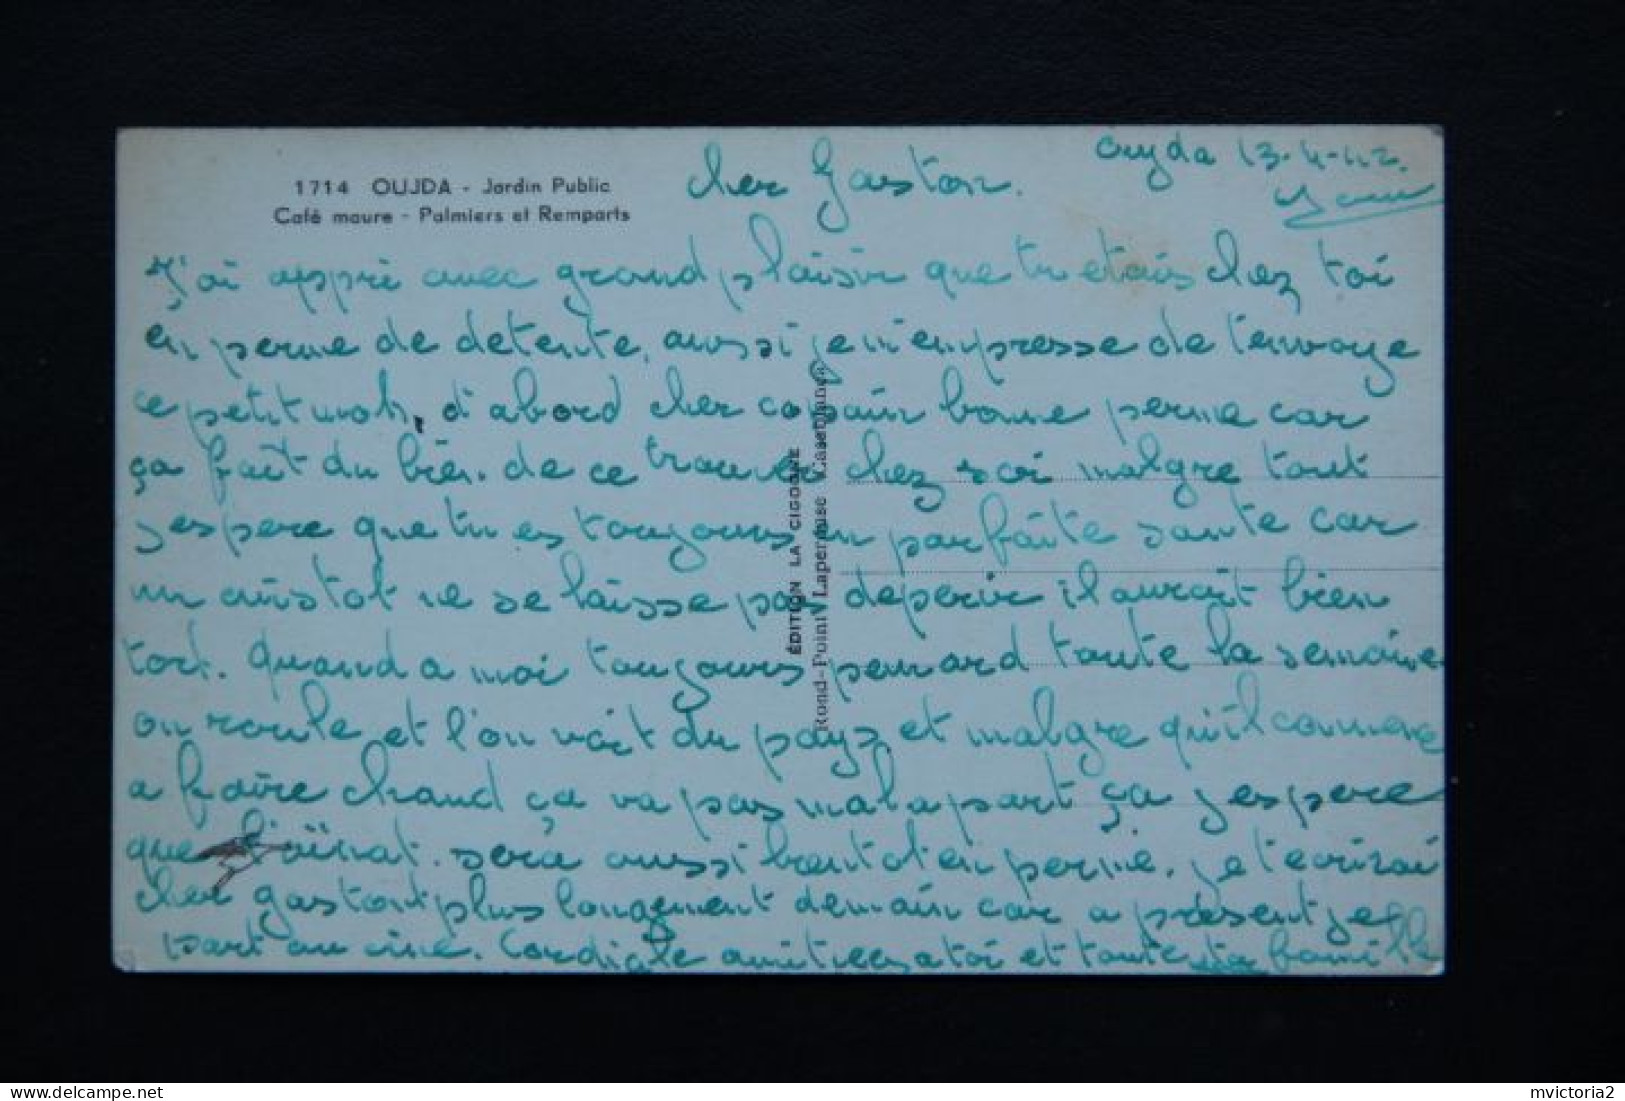 1714 OUJDA - Jardin Public
Café maure - Palmiers et Remparts
Oujda 13-4-42.
cher Gaston.
J'ai appri avec grand plaisir que tu etais chez toi
en perme de detente, aussi je m'empresse de t'envoye
ce petit mot, d'abord cher copain bonne perme car
ça fait du bien de ce trouver chez soi malgre tout
j'espere que tu es toujours en parfaite sante car
un cuistot ne se laisse pas deperir il aurait bien
tort. Quand a moi toujours penard toute la semaine
on roule et l'on voit du pays, et malgre qu'il commence
a faire chaud ça va pas mal a part ça j'espere
que sera aussi bientot en perme. je t'ecrirai
cher gaston plus longement demain car a présent je
part au ciné. Cordiale amitiees a toi et toute ta famille
ÉDITION LA CIGOGNE
Rond-Point Laperouse Casablanca
mvictoria2